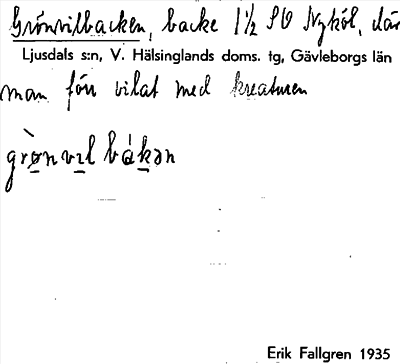 Grönvilbacken, backe 1½ SV Nyköl, där
Ljusdals s:n, V. Hälsinglands doms. tg, Gävleborgs län
man förr vilat med kreaturen
grònvıl bákən
Erik Fallgren 1935